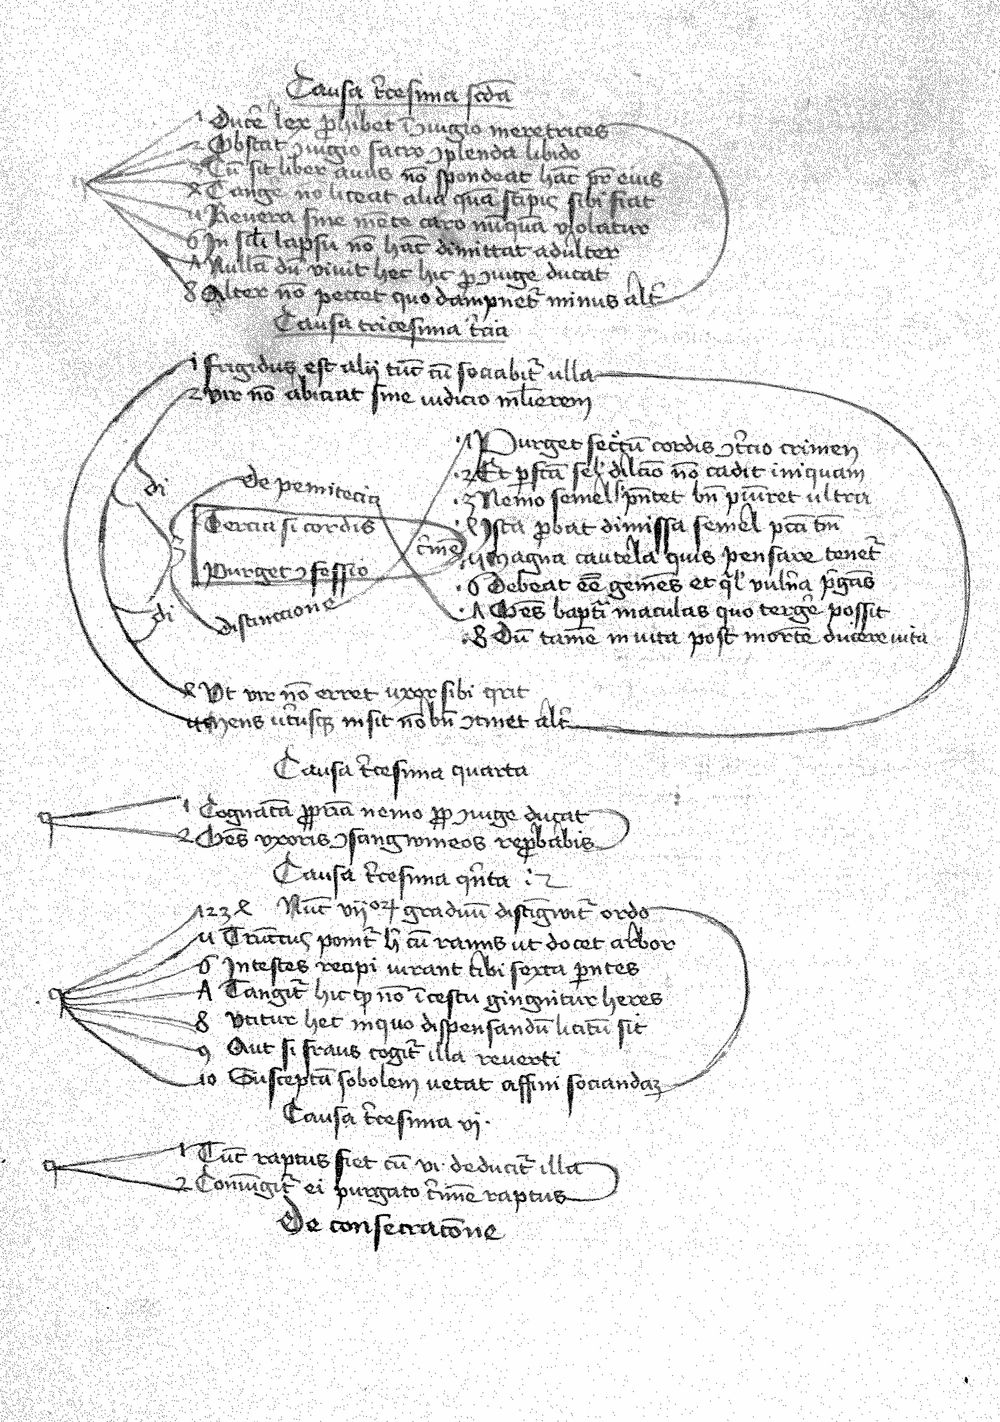 Causa t̄cesima scd̄a
1 Duce᷑ lex ꝓhibet ī ꝯiugio meretrices
2 Obstat ꝯiugio sacro ꝯplenda libido
3 Cū sit liber auus nō spondeat hāc pr̄ eius
4 Tange nō liceat alia quā stirpis sibi fiat
5 Reuera sine mēte caro nūquā violatur
6 In lapsu nō hāc dimittat adulter
7 Nullā dū viuit hec hic ꝓ ꝯiuge ducat
8 Alter nō peccet quo dampnet᷑ minus alt᷑
Causa tricesima t̄cia
1 Frigidus est alij tūc cū sociabit᷑ illa
2 vir nō abiciat sine iudicio ml̄ierem
di
de penitēcia
Tercia si cordis
c̄mē
Purget ꝯfessio
distinccione
di
1 Purget cordis ꝯt̄cio crimen
2 Et nō cadit iniquam
3 Nemo semel pn̄itet bn̄ ultra
4 Ista ꝓbat dimissa semel pcc̄a tm̄
5 Magna cautela quis pensare tenet᷑
6 Debeat eē gemēs et ql̄ vuln̄a
7 Oēs bapti maculas quo terge᷑ possit
8 Dū tamē in vita post mortē ducere vita
4 Vt vir nō erret uxor sibi q̄rit
5 Mens ut᷑usqꝫ insit nō bn̄ ꝯtinet alt᷑
Causa t̄cesima quarta
1 Cognatā ꝓpriā nemo ꝓ ꝯiuge ducat
2 Oēs vxoris ꝯsangwineos reꝓbabis
Causa t̄cesima qn̄ta
1 2 3 4 Nūc vijoꝝ graduū distīgwit᷑ ordo
5 Trūcus ponit᷑ h̄ cū ramis ut docet arbor
6 In testes recipi iurant tibi sexta pn̄tes
7 Tangit᷑ hic qꝫ nō īcestu gingnitur heres
8 Vtitur hec in quo dispensandū licitū sit
9 Aut si fraus cogit᷑ illa reuerti
10 Susceptā sobolem uetat affini sociandaꝫ
Causa t̄cesima vj·
1 Tūc raptus fiet cū vi deducit᷑ illa
2 Coniūgit᷑ ei purgato c̄mīe raptus
De consecracōne